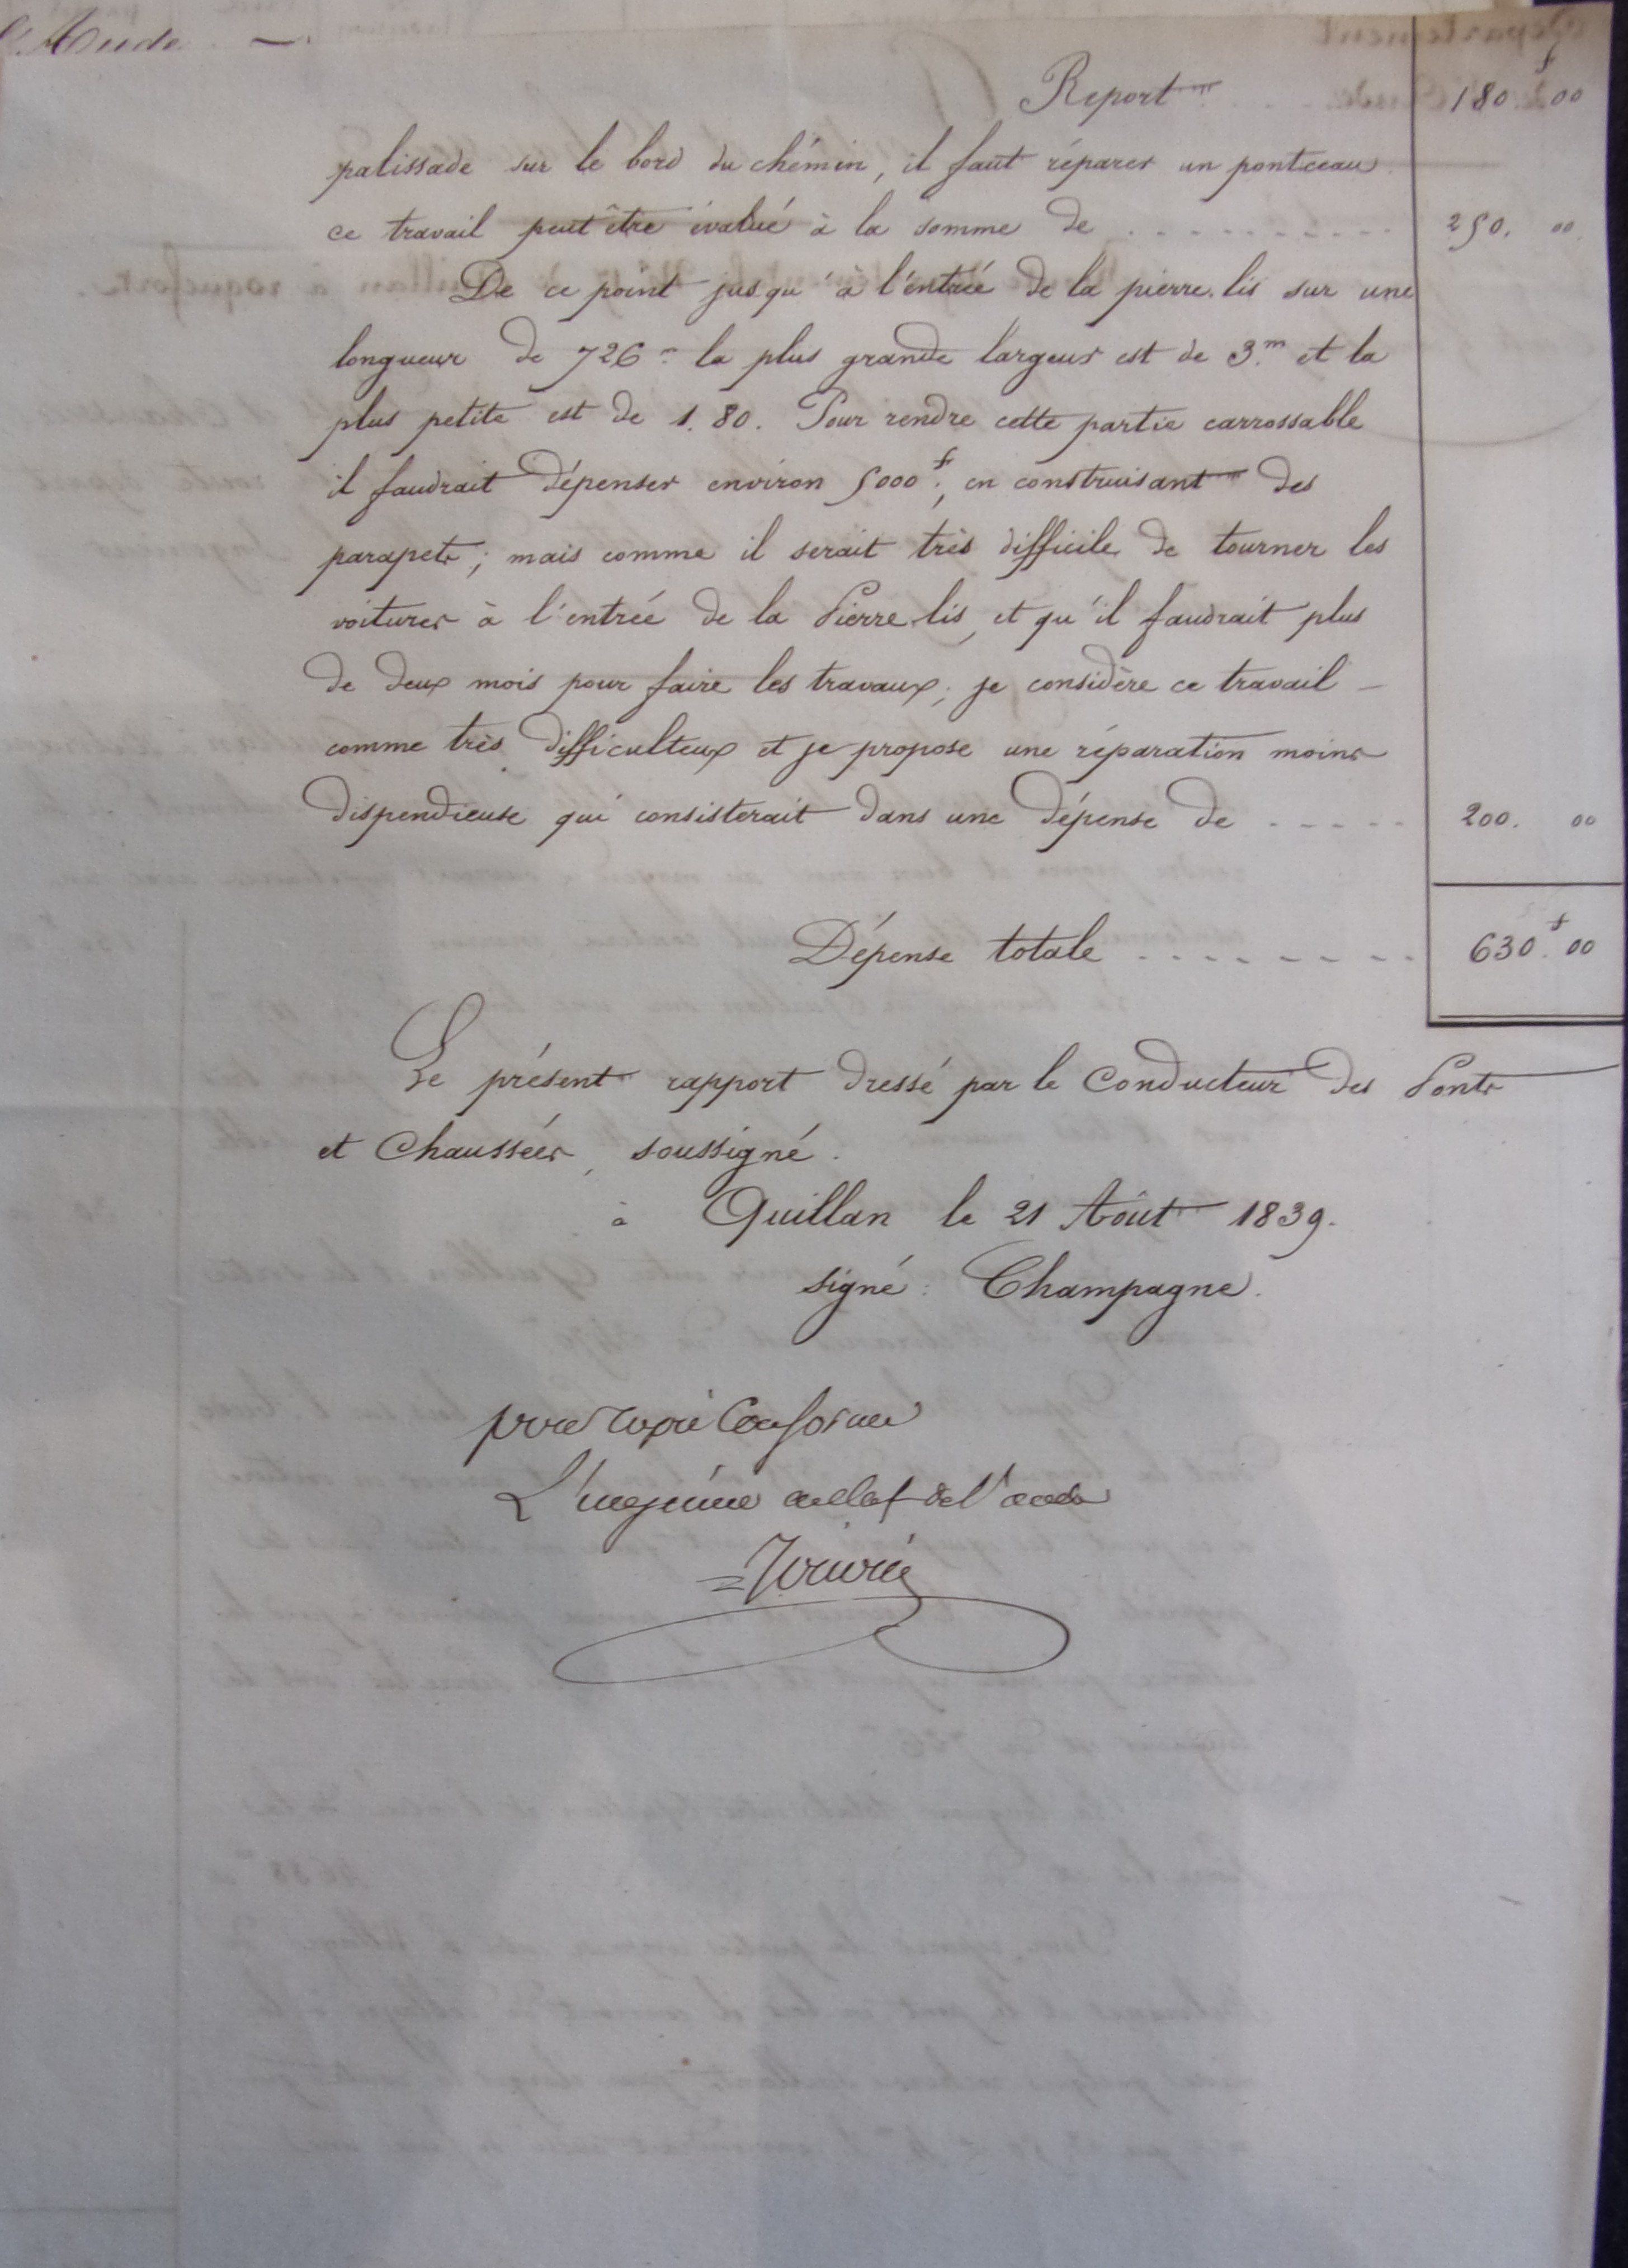 l'Aude
Report 180.f 00
palissade sur le bord du chémin, il faut réparer un pontceau.
ce travail peut être évalué à la somme de .......... 250. 00.
De ce point jusqu'à l'entrée de la pierre. lis sur une
longueur de 726m la plus grande largeur est de 3.m et la
plus petite est de 1.80. Pour rendre cette partie carrossable
il faudrait dépenser environ 5000f., en construisant des
parapets; mais comme il serait très difficile de tourner les
voitures à l'entrée de la Pierre lis, et qu'il faudrait plus
de deux mois pour faire les travaux; je considère ce travail –
comme très difficulteux et je propose une réparation moins
dispendieuse qui consisterait dans une dépense de ..... 200. 00
Dépense totale ........ 630.f 00
Le présent rapport dressé par le Conducteur des Ponts
et Chaussées, soussigné.
à Quillan le 21 Aôut 1839.
signé: Champagne.
pour copie Conforme
L'ingénieur en chef de l'aude